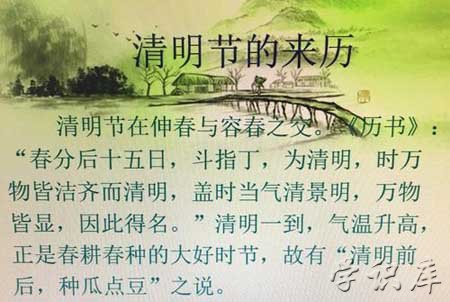 清明节的来历
清明节在伸春与容春之交。《历书》:
“春分后十五日，斗指丁，为清明，时万
物皆洁齐而清明，盖时当气清景明，万物
皆显，因此得名。”清明一到，气温升高，
正是春耕春种的大好时节，故有“清明前
后，种瓜点豆”之说。
学识库